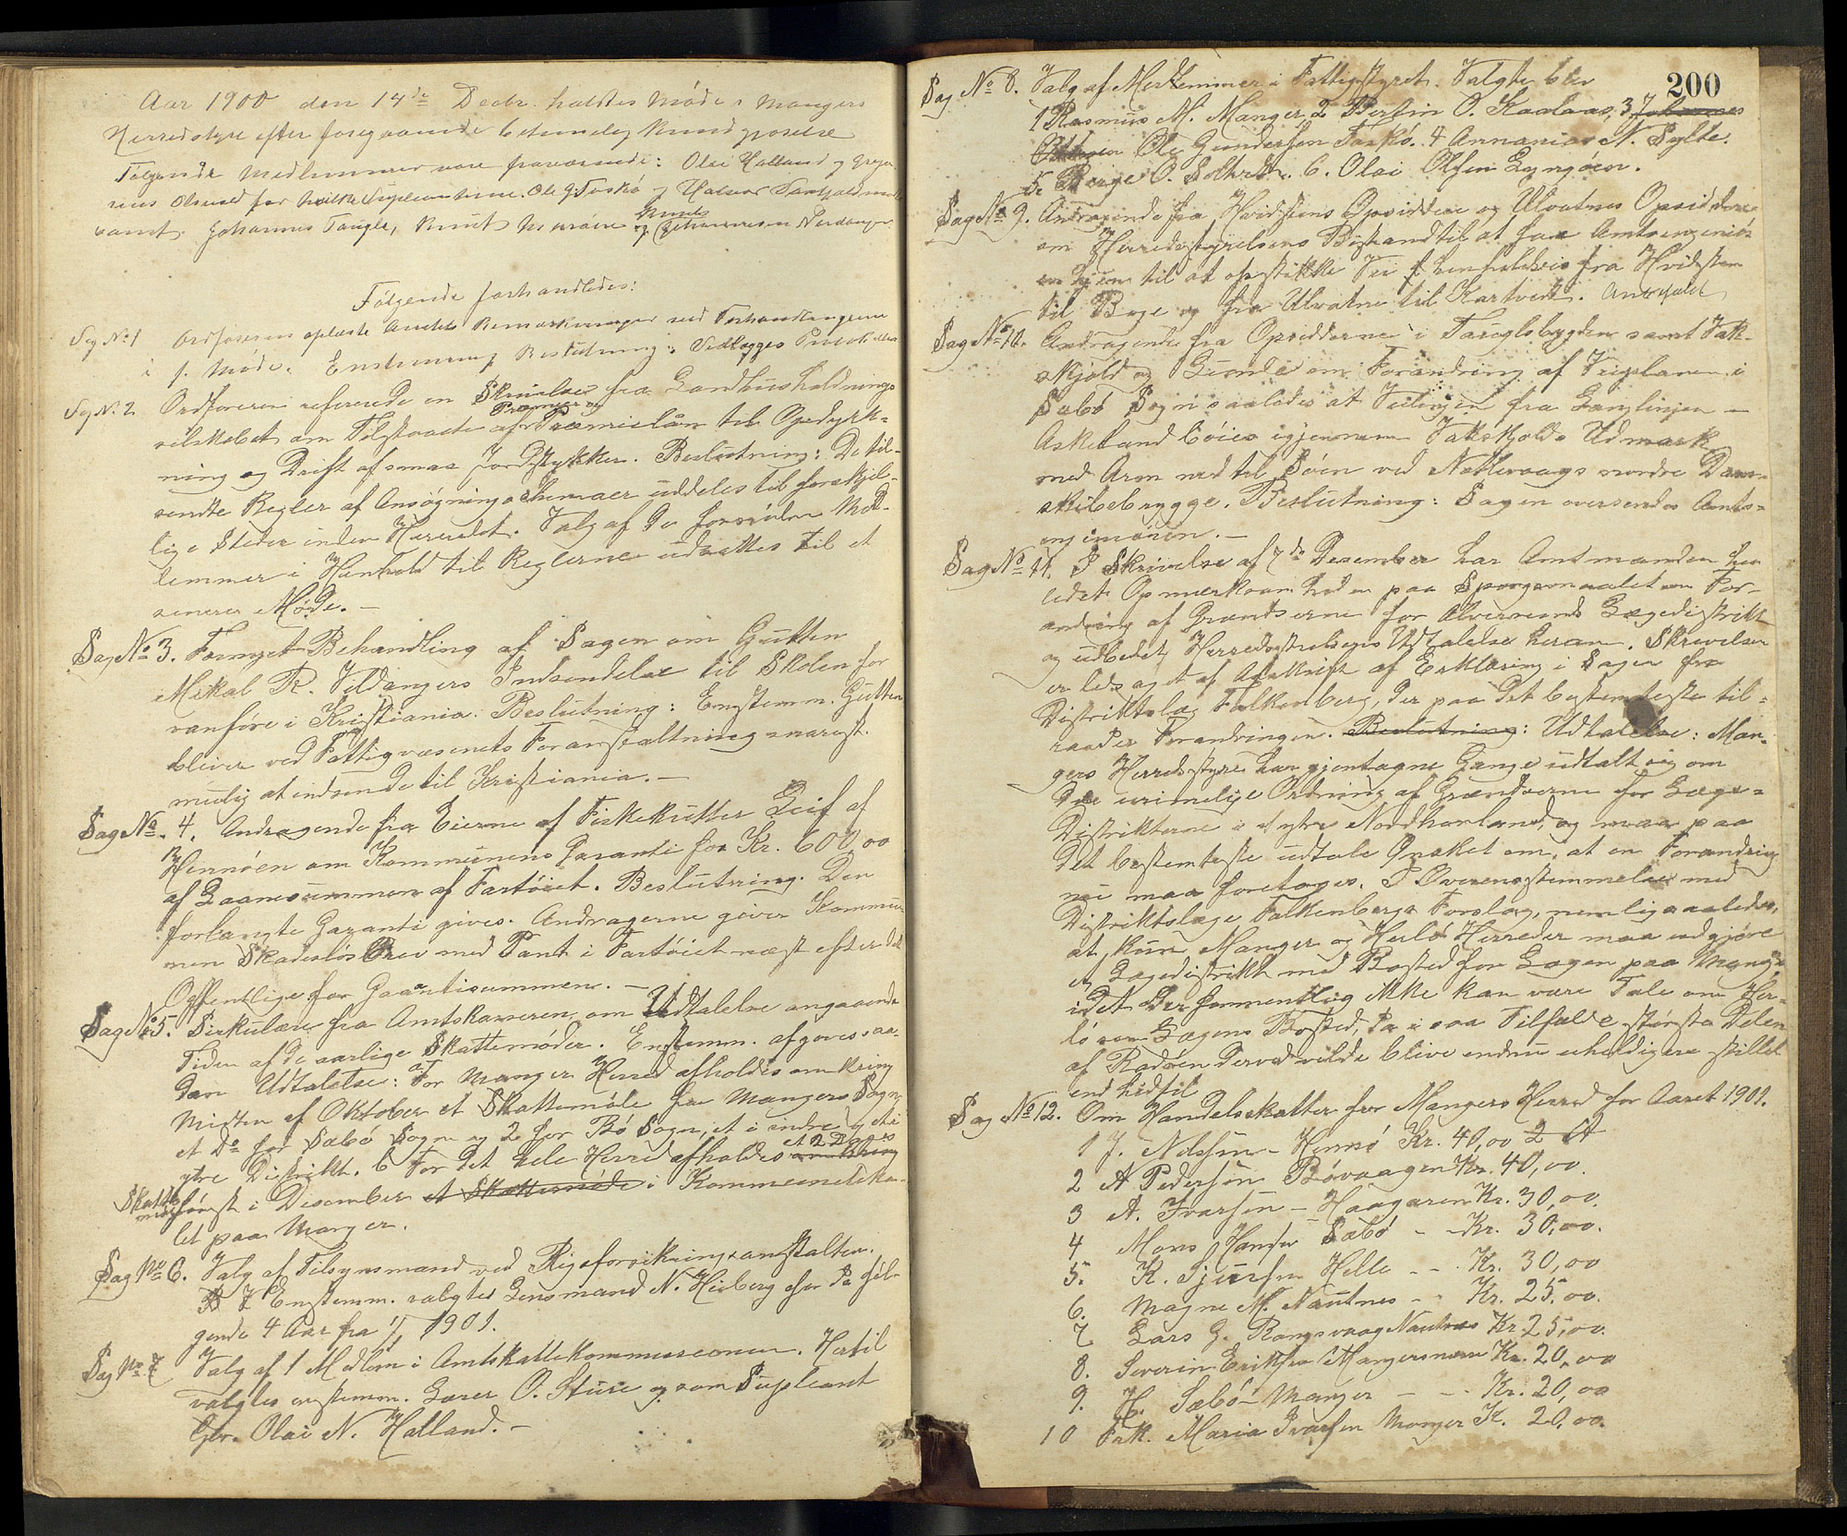 Aar 1900 den 14de Decbr. holdtes Møde i Mangers
Herredstyre efter foregaaende betimelig Kundgjørelse
Følgende Medlemmer vare fraværende: Olai Halland og Grego
rius Olsen for hvilke Supleanterne. Ole G. Toskø og Halvor
samt Johannes Taugle, Knut og Knut Johannessen Nordanger
Følgende forhandledes:
Sag No 1 Ordføreren oplæste Amtets Bemærkninger ved Forhandlingerne
i f. Møde. Enstemmig Beslutning: Vedlægges
Sag No 2. Ordføreren refererede en Skrivelse fra Landhusholdnings
selskabet om Tilstaaelse af Præmier og Præmielån til Opdyrk-
ning og Drift af smaa Jordstykker. Beslutning: De til-
sendte Regler af Ansøgningsschemaer uddeles til forskjel-
lige Steder inden Herredet. Valg af De Med-
lemmer i Henhold til Reglerne udsættes til et
senere Møde. —
Sag No 3. Fornyet Behandling af Sagen om Gutten
Mikal R. Veldangers Indsendelse til Skolen for
vanføre i Kristiania. Beslutning: Enstemm. Gutten
bliver ved Fattigvæsenets Foranstaltning snarest
mulig at indsende til Kristiania. —
Sag No. 4. Andragende fra Eierne af Fiskekutter Leif af
Hennøen om Kommunens Garanti for Kr. 600,00
af Laanesummen af Fartøiet. Beslutning. Den
forlangte Garanti gives. Andragerne giver Kommu
nen Skadesløsbrev med Pant i Fartøiet næst efter det
Offentlige for Garantisummen. —
Sag No 5. Sirkulære fra Amtskasseren, om Udtalelse angaaende
Tiden af de aarlige Skattemøder. Enstemm. afgaves saa-
dan Udtalelse: a For Manger Herred afholdes omkring
Midten af Oktober et Skattemøde for Mangers Sogn,
et Do for Sæbø Sogn og 2 for Bø Sogn, et i indre og et i
ytre Distrikt. b For det hele Herred afholdes et 2 Dages omkring
Skatte møde først i Desember et Skattemøde i Kommuneloka-
let paa Manger.
Sag No 6. Valg af Tilsynsmand ved Rigsforsikringsanstalten.
Enstemm. valgtes Lensmand N. Heiberg for de føl-
gende 4 Aar fra 1/1 1901.
Sag No 7 Valg af 1 Medlem i Amtskattekommissionen. Hertil
valgtes enstemm. Lærer O. Sture og som Supleant
Gbr. Olai N. Halland. —
200
Sag No 8. Valg af Medlemmer i Fattigstyret. Valgte blev
1 Rasmus M. Manger, 2 Bertin O. Kaalaas, 3 Johannes
Ole Gundersen Toskø. 4 Annanias N. Sylte.
5. Børge O. Soltvedt. 6. Olai Olsen Lyngøen.
Sag No 9. Andragende fra Hvidstens Opsiddere og Ulvatnes Opsiddere
om Herredstyrelsens Bistand til at faa Amtsingeniør
en hjem til at opstikke Vei henholdsvis fra Hvidsten
til Boge og fra Ulvatne til Kartveit. Anbefalet
Sag No 10. Andragende fra Opsidderne i Tauglebygden samt Vak-
skjold og om Forandring af Veiplanen i
Sæbø Sogn saaledes at Veilinjen fra Langlinjen —
Askeland bøies igjennem Vakskjolds Udmark
med Arm ned til Søen ved Nøttevaags nordre Dam-
skibsbrygge. Beslutning: Sagen oversendes Amts-
ingeniøren. —
Sag No 11. I Skrivelse af 7de Desember har Amtmanden hen
ledet Opmærksomheden paa Spørgsmaalet om For-
andring af Grændserne for Alversunds Lægedistrikt
og udbedet Herredsstyrelsens Udtalelse heraom. Skrivelsen
er ledsaget af Afskrift af Erklæring i Sagen fra
Distriktslæg Falkenberg, der paa det bestemteste til-
raader Forandringen. Beslutning: Udtalelse: Man-
gers Herredsstyre har gjentagne Gange udtalt sig om
Den urimelige Ordning af Grændserne for Læge-
Distrikterne i ytre Nordhordland, og maa paa
Det bestemteste udtale Ønsket om, at en Forandring
nu maa foretages. I Overensstemmelse med
Distriktslæge Falkenbergs Forslag, nemlig saaledes,
at kun Manger og Herlø Herreder maa udgjøre
et Lægedistrikt med Bosted for Lægen paa Manger
idet der formentlig ikke kan være Tale om Her-
lø som Lægens Bosted, da i saa Tilfælde største Delen
af Radøen derved vilde blive endnu uheldigere stillet
end hidtil
Sag No 12. Om Handelsskatter for Mangers Herred for Aaret 1901.
1 J. Nilssen — Hennø Kr. 40,00
2 A Pedersen Bøvaagen Kr. 40,00.
3 A. Ivarsen — Haagaren Kr. 30,00.
4 Mons Hansen Sæbø - - Kr. 30,00.
5. K. Sjursen Helle - - Kr. 30,00
6. Magne M. Nautnes - - Kr. 25,00.
7 Lars G. Rongsvaag Nautnes Kr 25,00.
8. Severin Eriksen Mangersnes Kr. 20,00
9. H. Sæbø — Manger - - Kr. 20,00
10 Frk. Maria Ivarsen Manger K. 20,00.